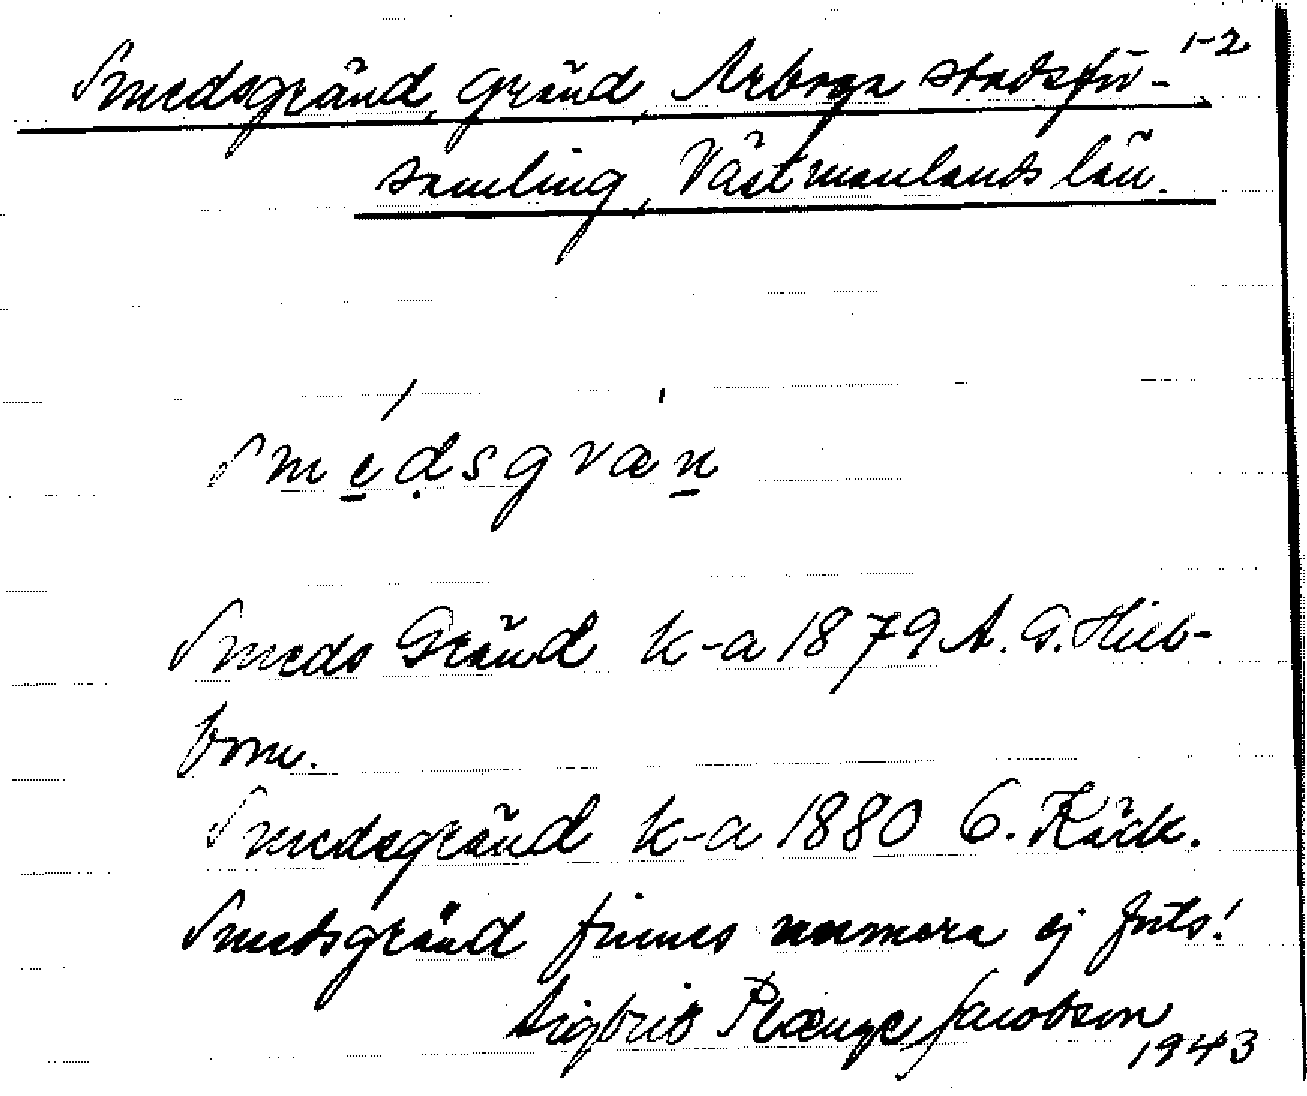 1-2
Smedsgränd, Gränd, Arboga stadsför-
samling, Västmanlands län.
Smedsgrän
Smeds Gränd k-a 1879 A. G. Hill-
bom.
Smedsgränd k-a 1880 C. Käck.
Smedsgränd finnes numera ej forts!
Sigbrit Plænge Jacobson
1943